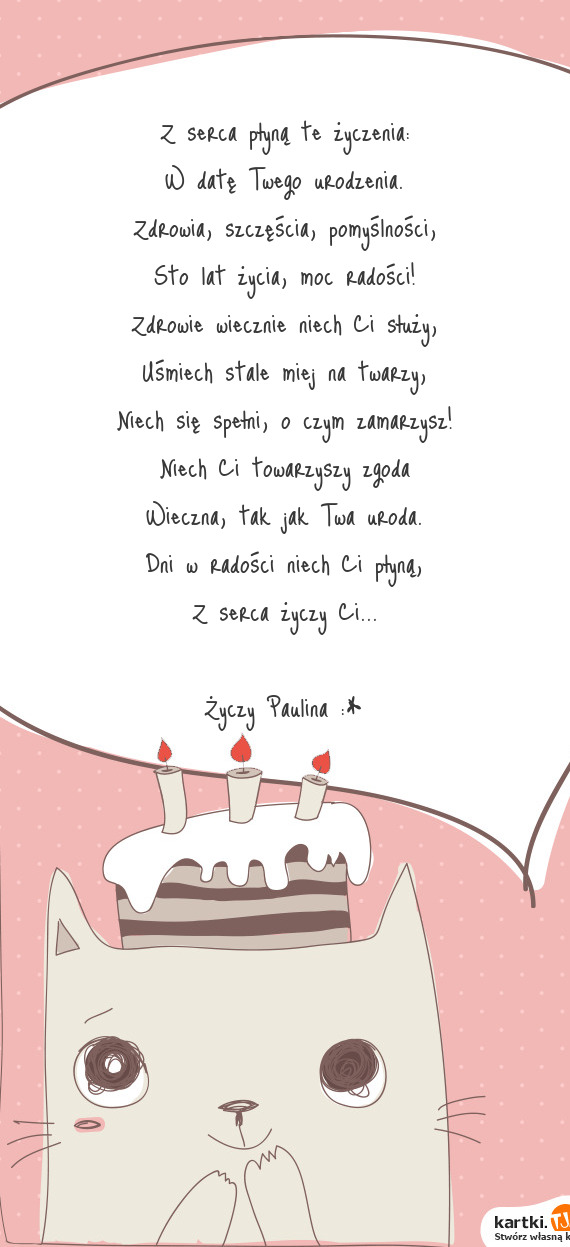 Z serca płyną te życzenia:
W datę Twego urodzenia.
Zdrowia, szczęścia, pomyślności,
Sto lat życia, moc radości!
Zdrowie wiecznie niech Ci służy,
Uśmiech stale miej na twarzy,
Niech się spełni, o czym zamarzysz!
Niech Ci towarzyszy zgoda
Wieczna, tak jak Twa uroda.
Dni w radości niech Ci płyną,
Z serca życzy Ci...
Życzy Paulina :*
kartki.TJ
Stwórz własną k